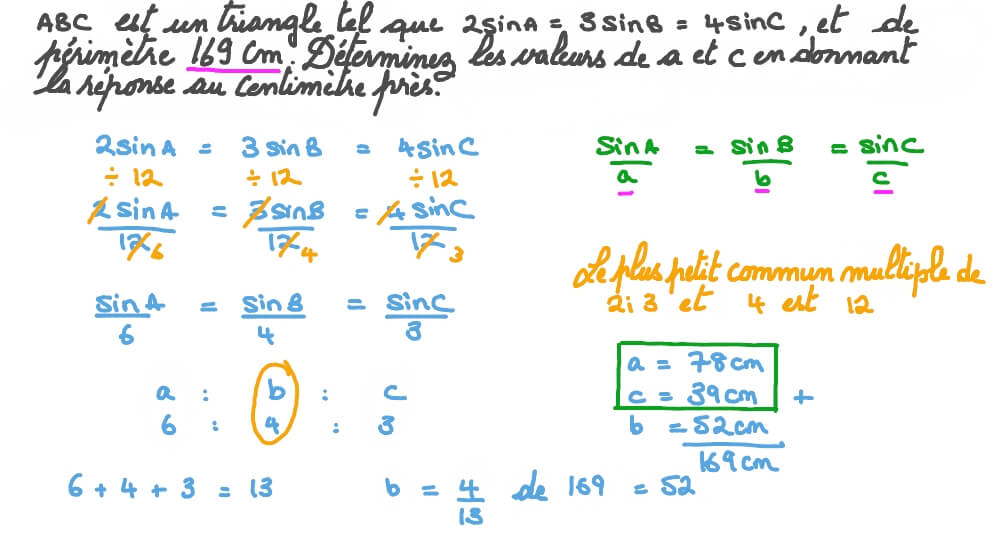 ABC est un triangle tel que 2sinA = 3sinB = 4sinC, et de
périmètre 169 cm. Déterminez les valeurs de a et c en donnant
la réponse au centimètre près.
2sinA = 3sinB = 4sinC
÷ 12 ÷ 12 ÷ 12
2sinA/12 6 = 3sinB/12 4 = 4sinC/12 3
sinA/6 = sinB/4 = sinC/3
a : b : c
6 : 4 : 3
6 + 4 + 3 = 13
b = 4/13 de 169 = 52
sinA/a = sinB/b = sinC/c
Le plus petit commun multiple de
2i 3 et 4 est 12
a = 78cm
c = 39cm +
b = 52cm
169cm